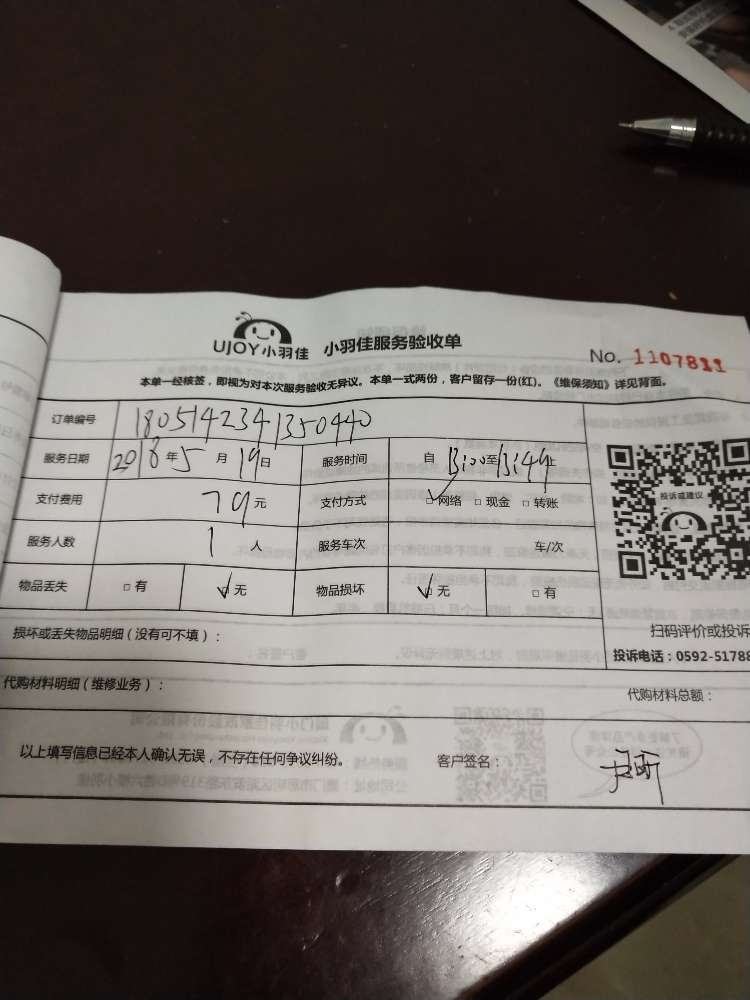 UJOY小羽佳 小羽佳服务验收单
No. 1107811
本单一经核签，即视为对本次服务验收无异议。本单一式两份，客户留存一份(红)。《维保须知》详见背面。
订单编号 1805142341350440
服务日期 2018年5月19日 服务时间 自13:00至13:49止
支付费用 79元 支付方式 ☑网络 □现金 □转账
服务人数 1人 服务车次 车/次
物品丢失 □有 ☑无 物品损坏 ☑无 □有
投诉或建议
扫码评价或投诉
投诉电话：0592-51788
损坏或丢失物品明细（没有可不填）：
代购材料明细（维修业务）： 代购材料总额：
以上填写信息已经本人确认无误，不存在任何争议纠纷。 客户签名：